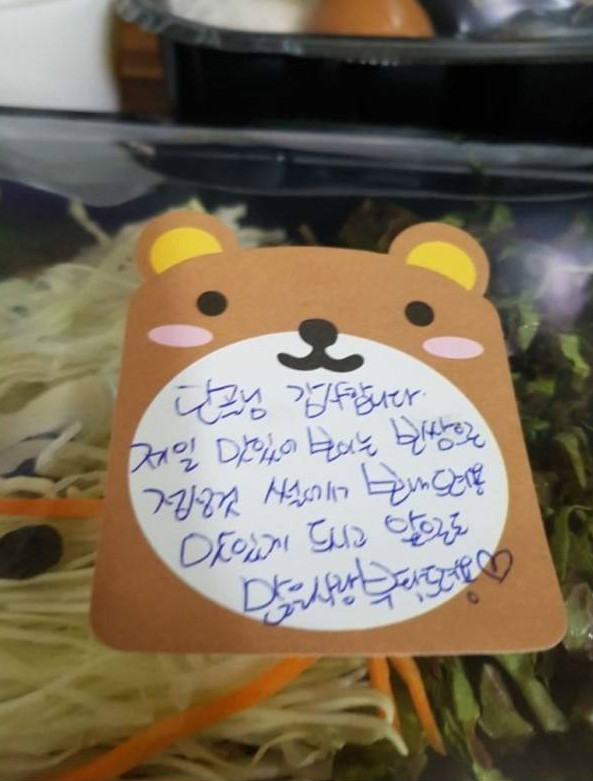 단골님 감사합니다.
제일 맛있어 보이는 보쌈으로
썰어서 보내드려용
맛있게 드시고 앞으로도
많은사랑 부탁드려요!♡